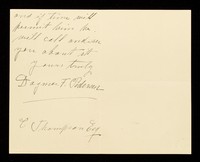 and if time will
permit him he
will call and see
you about it
yours truly
Dagmar T. Pederson
C Thompson Esq